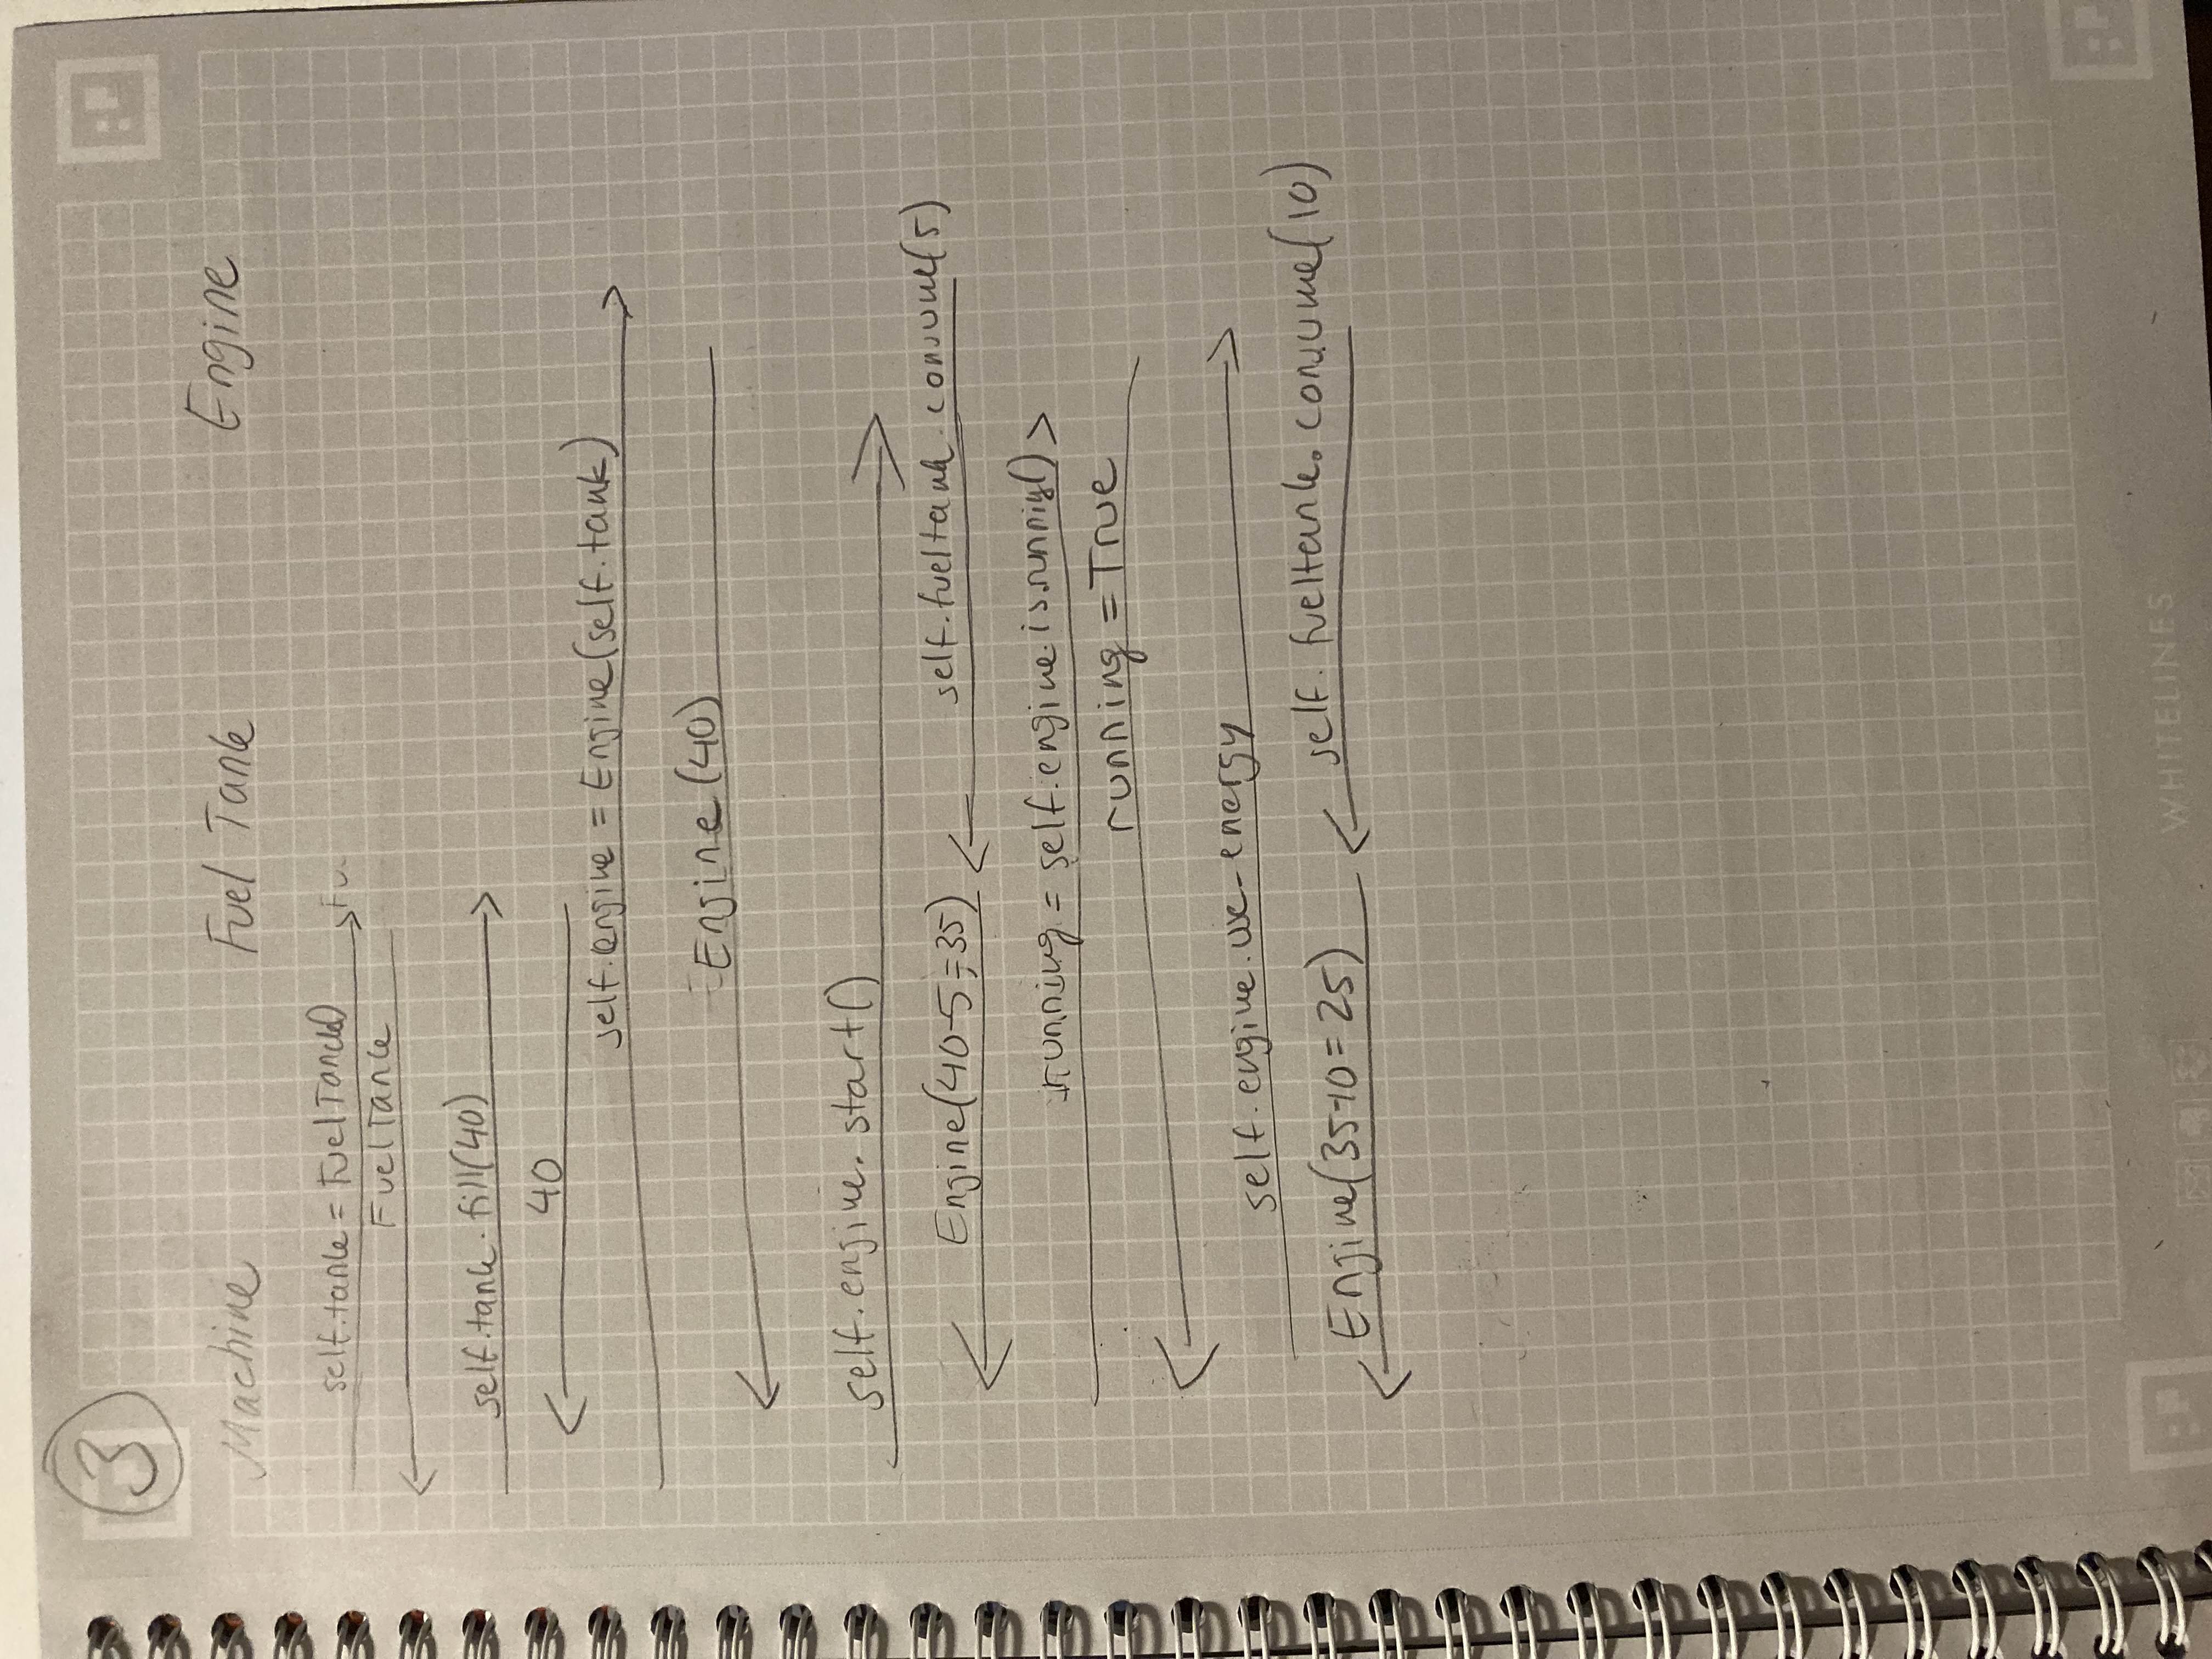 3
Machine Fuel Tank Engine
self.tank = FuelTank() Fu.
FuelTank
self.tank.fill(40)
40
self.engine = Engine(self.tank)
Engine(40)
self.engine.start()
Engine(40-5=35) self.fueltank.consume(5)
running = self.engine.is.running()
running = True
self.engine.use_energy
Engine(35-10=25) self.fueltank.consume(10)
WHITELINES